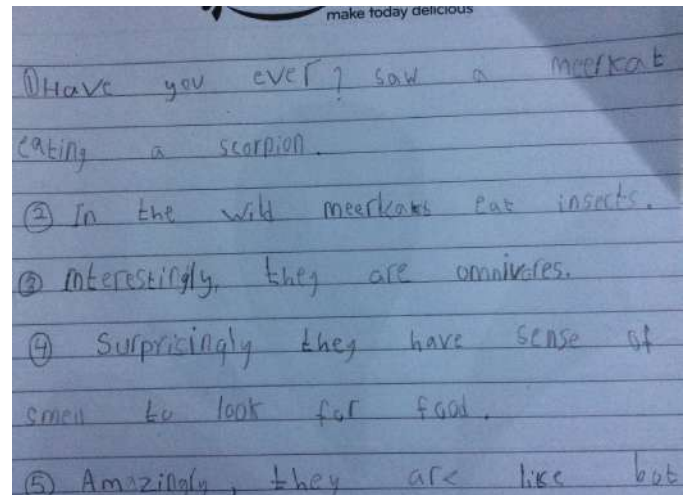 make today delicious
① Have you ever? saw a meerkat
eating a scorpion.
② In the wild meerkats eat insects.
③ Interestingly, they are omnivores.
④ Surpricingly they have sense of
smell to look for food.
⑤ Amazingly, they are like bot